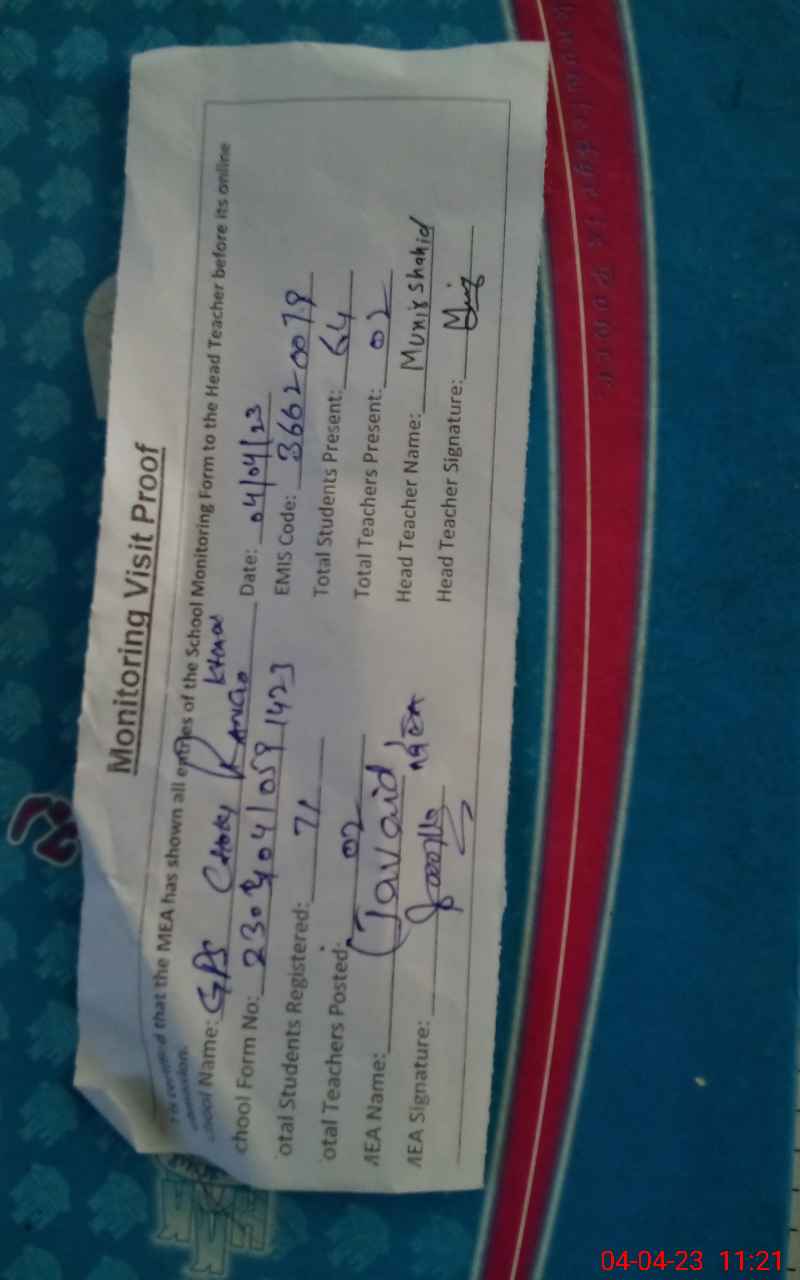 Monitoring Visit Proof
that the MEA has shown all entries of the School Monitoring Form to the Head Teacher before its online
School Name: GPS Choky Rango Khanan
chool Form No: 23040410591423
Date: 04/04/23
EMIS Code: 36620079
otal Students Registered: 71
Total Students Present: 64
otal Teachers Posted: 02
Total Teachers Present: 02
MEA Name: (Javaid)
Head Teacher Name: Munir Shahid
MEA Signature: MEA
Head Teacher Signature:
04-04-23 11:21